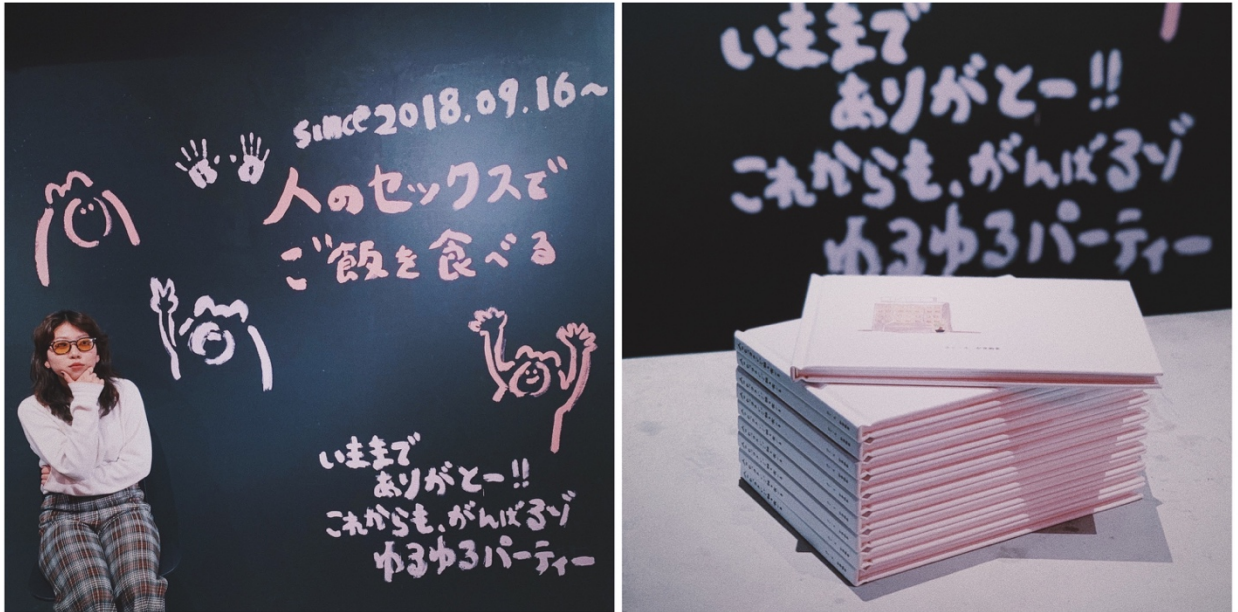 since 2018.09.16~
人のセックスで
ご飯を食べる
いままで
ありがとー!!
これからも、がんばるゾ
ゆるゆるパーティー
いままで
ありがとー!!
これからも、がんばるゾ
ゆるゆるパーティー